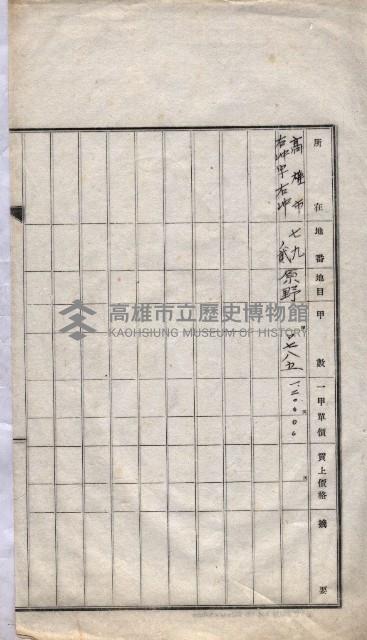 所在
地番
地目
甲數
一甲單價
買上價格
摘要
高雄市
右冲甲右冲
七九
原野
甲
七八五
円
一二〇〇〇〇
円
高雄市立歷史博物館
KAOHSIUNG MUSEUM OF HISTORY